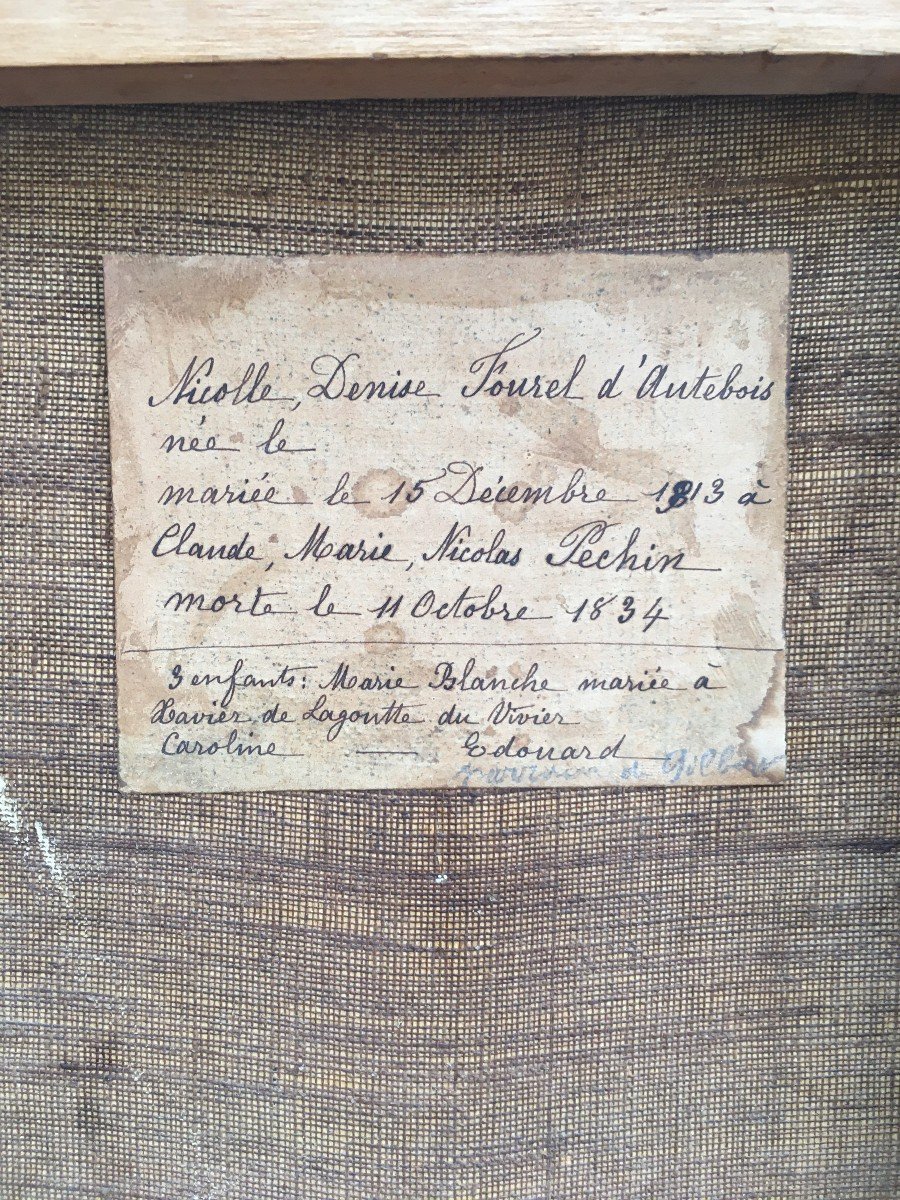 Nicolle, Denise Fourel d'Autebois
née le
mariée le 15 Décembre 1813 à
Claude, Marie, Nicolas Pechin
morte le 11 Octobre 1834
3 enfants: Marie Blanche mariée à
Xavier de Lagoutte du Vivier
Caroline — Edouard
de